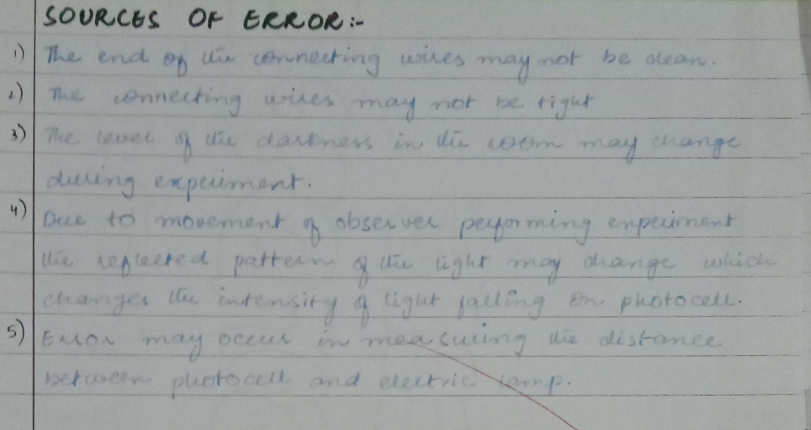 SOURCES OF ERROR:-
1) The end of the connecting wires may not be clean.
2) The connecting wires may not be tight
3) The level of the darkness in the room may change
during experiment.
4) Due to movement of observer performing experiment
the reflected pattern of the light may change which
changes the intensity of light falling on photocell.
5) Error may occur in measuring the distance
between photocell and electric lamp.